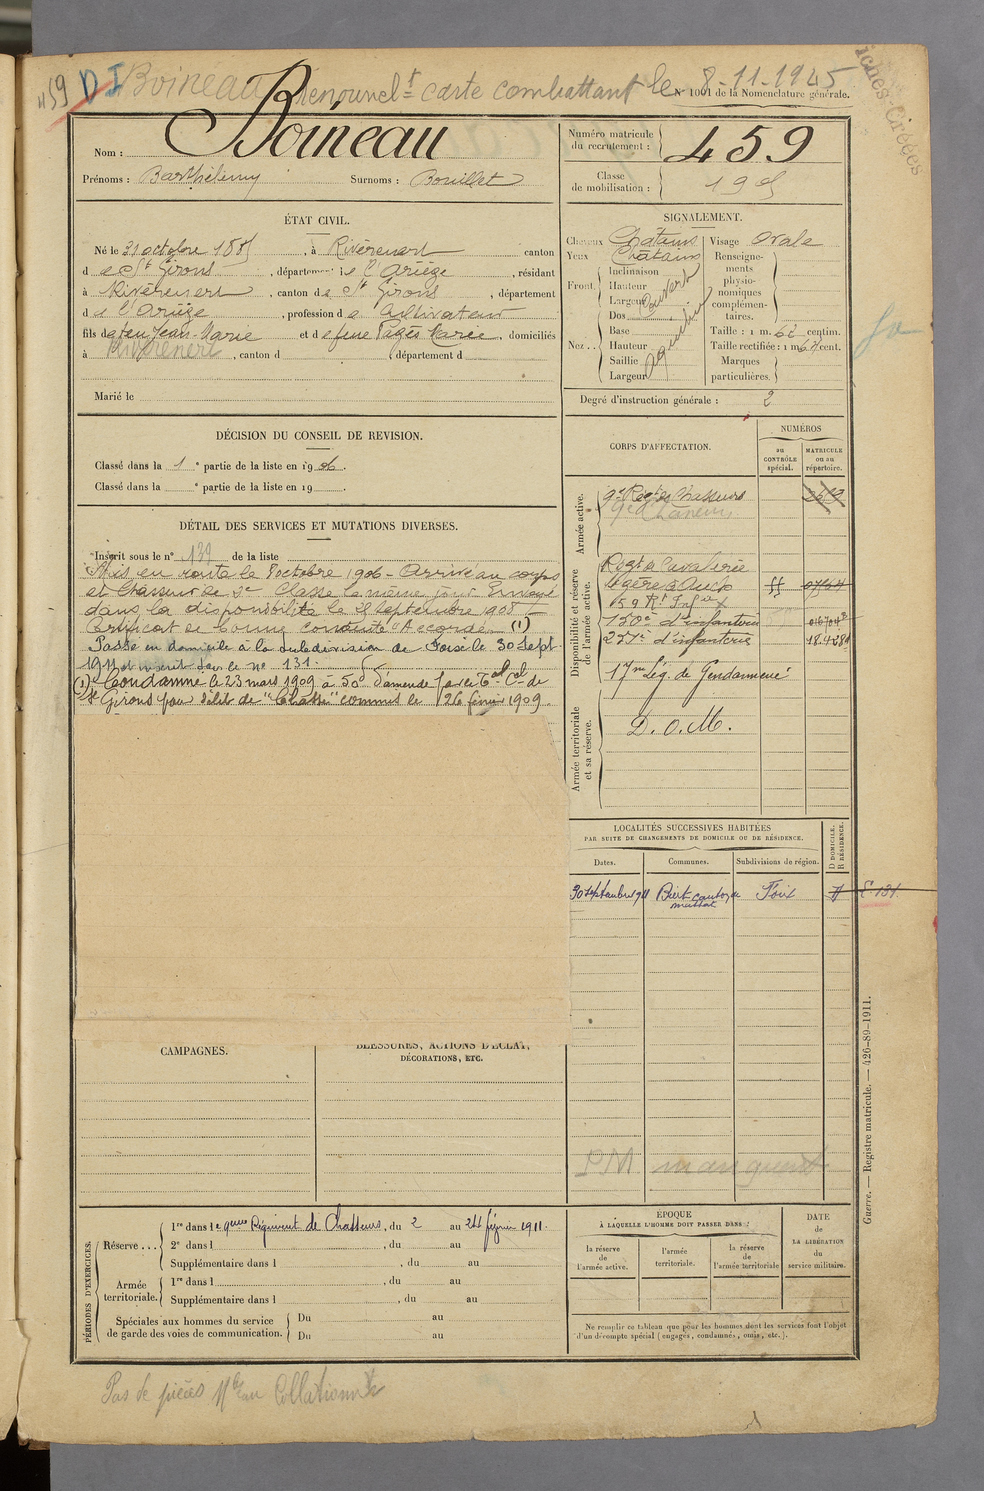 459 D I Boineau renouvel.t carte combattant le 8-11-1945
N° 1001 de la Nomenclature générale.
Nom : Boineau
Prénoms : Barthélemy Surnoms : Bouillet
Numéro matricule du recrutement : 459
Classe de mobilisation : 1905
ÉTAT CIVIL.
Né le 31 octobre 1885, à Rivèrenert canton
de St Girons, département de l'Ariège, résidant
à Rivèrenert, canton de St Girons, département
de l'Ariège, profession de Cultivateur
fils de feu Jean-Marie et de feue Pagès Marie, domiciliés
à Rivèrenert, canton d département d
Marié le
SIGNALEMENT.
Cheveux Châtains
Yeux Châtains
Front.
Inclinaison
Hauteur
Largeur
Dos
Couvert
Nez..
Base
Hauteur
Saillie
Largeur
Visage Ovale
Renseignements physionomiques complémentaires.
Taille : 1 m. 62 centim.
Taille rectifiée : 1 m. cent.
Marques particulières.
Degré d'instruction générale : 2
DÉCISION DU CONSEIL DE REVISION.
Classé dans la 1e partie de la liste en 1906.
Classé dans la e partie de la liste en 19 .
CORPS D'AFFECTATION.
NUMÉROS
au CONTRÔLE spécial.
MATRICULE ou au répertoire.
Armée active.
9e Régt de Chasseurs
Disponibilité et réserve de l'armée active.
Régt de Cavalerie
légère à Auch
59 Rt Infie
150e d'infanterie
257e d'infanterie
17me Lég. de Gendarmerie
Armée territoriale et sa réserve.
D. O. M.
DÉTAIL DES SERVICES ET MUTATIONS DIVERSES.
Inscrit sous le n° 139 de la liste
Mis en route le 8 octobre 1906 - Arrivé au corps
et Chasseur de 2e Classe le même jour. Envoyé
dans la disponibilité le 28 septembre 1908 -
Certificat de bonne conduite "Accordé" (1)
Passé en domicile à la subdivision de Foix le 30 Sept.
1911 et inscrit sous le n° 131.
(1) Condamné le 23 mars 1909 à 50f d'amende par le Tal Cel de
St Girons pour délit de "Chasse" commis le 26 février 1909.
LOCALITÉS SUCCESSIVES HABITÉES
PAR SUITE DE CHANGEMENTS DE DOMICILE OU DE RÉSIDENCE.
Dates.
Communes.
Subdivisions de région.
D DOMICILE.
R RÉSIDENCE.
30 septembre 1911 Biert canton de Massat Foix
CAMPAGNES.
BLESSURES, ACTIONS D'ÉCLAT,
DÉCORATIONS, ETC.
PM manquent
PÉRIODES D'EXERCICES.
Réserve...
1re dans le 9eme Régiment de Chasseurs, du 2 au 24 février 1911.
2e dans l , du au
Supplémentaire dans l , du au
Armée territoriale.
1re dans l , du au
Supplémentaire dans l , du au
Spéciales aux hommes du service de garde des voies de communication.
Du au
Du au
ÉPOQUE
À LAQUELLE L'HOMME DOIT PASSER DANS :
la réserve de l'armée active.
l'armée territoriale.
la réserve de l'armée territoriale
DATE de LA LIBÉRATION du service militaire.
Ne remplir ce tableau que pour les hommes dont les services font l'objet
d'un décompte spécial (engagés, condamnés, omis, etc.).
Guerre. — Registre matricule. — 426-89-1911.
Pas de pièces